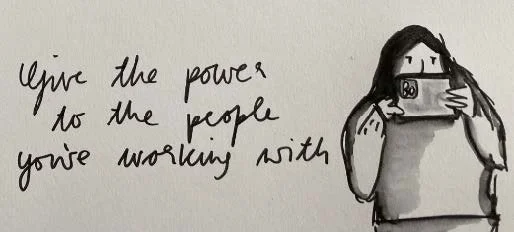 Give the power
to the people
you're working with